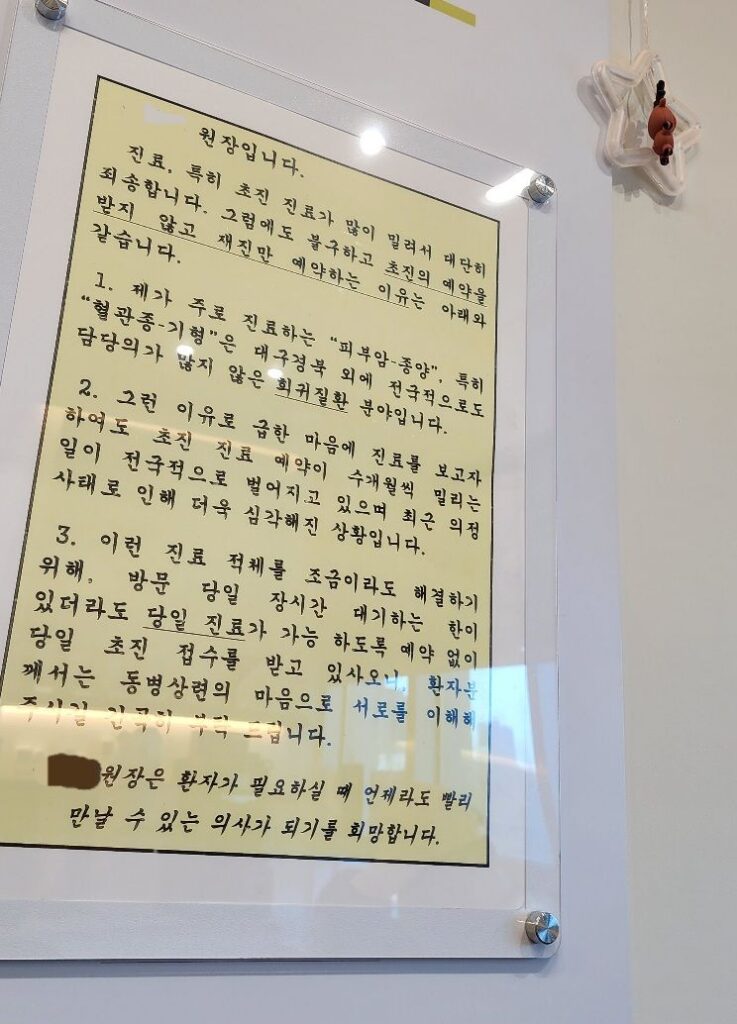 원장입니다.
진료, 특히 초진 진료가 많이 밀려서 대단히
죄송합니다. 그럼에도 불구하고 초진의 예약을
받지 않고 재진만 예약하는 이유는 아래와
같습니다.
1. 제가 주로 진료하는 “피부암-종양”, 특히
“혈관종-기형”은 대구경북 외에 전국적으로도
담당의가 많지 않은 희귀질환 분야입니다.
2. 그런 이유로 급한 마음에 진료를 보고자
하여도 초진 진료 예약이 수개월씩 밀리는
일이 전국적으로 벌어지고 있으며 최근 의정
사태로 인해 더욱 심각해진 상황입니다.
3. 이런 진료 적체를 조금이라도 해결하기
위해, 방문 당일 장시간 대기하는 한이
있더라도 당일 진료가 가능 하도록 예약 없이
당일 초진 접수를 받고 있사오니, 환자분
께서는 동병상련의 마음으로 서로를 이해해
주시길 간곡히 부탁 드립니다.
원장은 환자가 필요하실 때 언제라도 빨리
만날 수 있는 의사가 되기를 희망합니다.